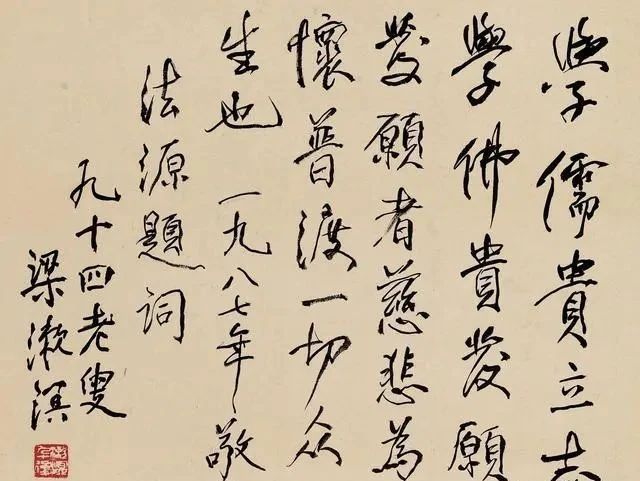 學儒貴立志
學佛貴發願
發願者慈悲為
懷普渡一切众
生也 一九八七年敬
法源題詞
九十四老叟
梁漱溟